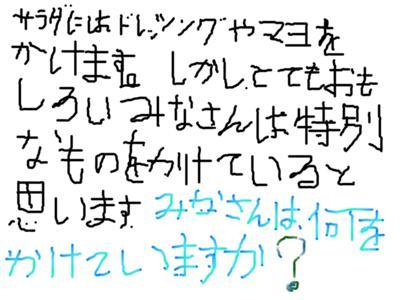 サラダにはドレッシングやマヨを
かけます。しかし、とてもおも
しろいみなさんは特別
なものをかけていると
思います みなさんは、何を
かけていますか?